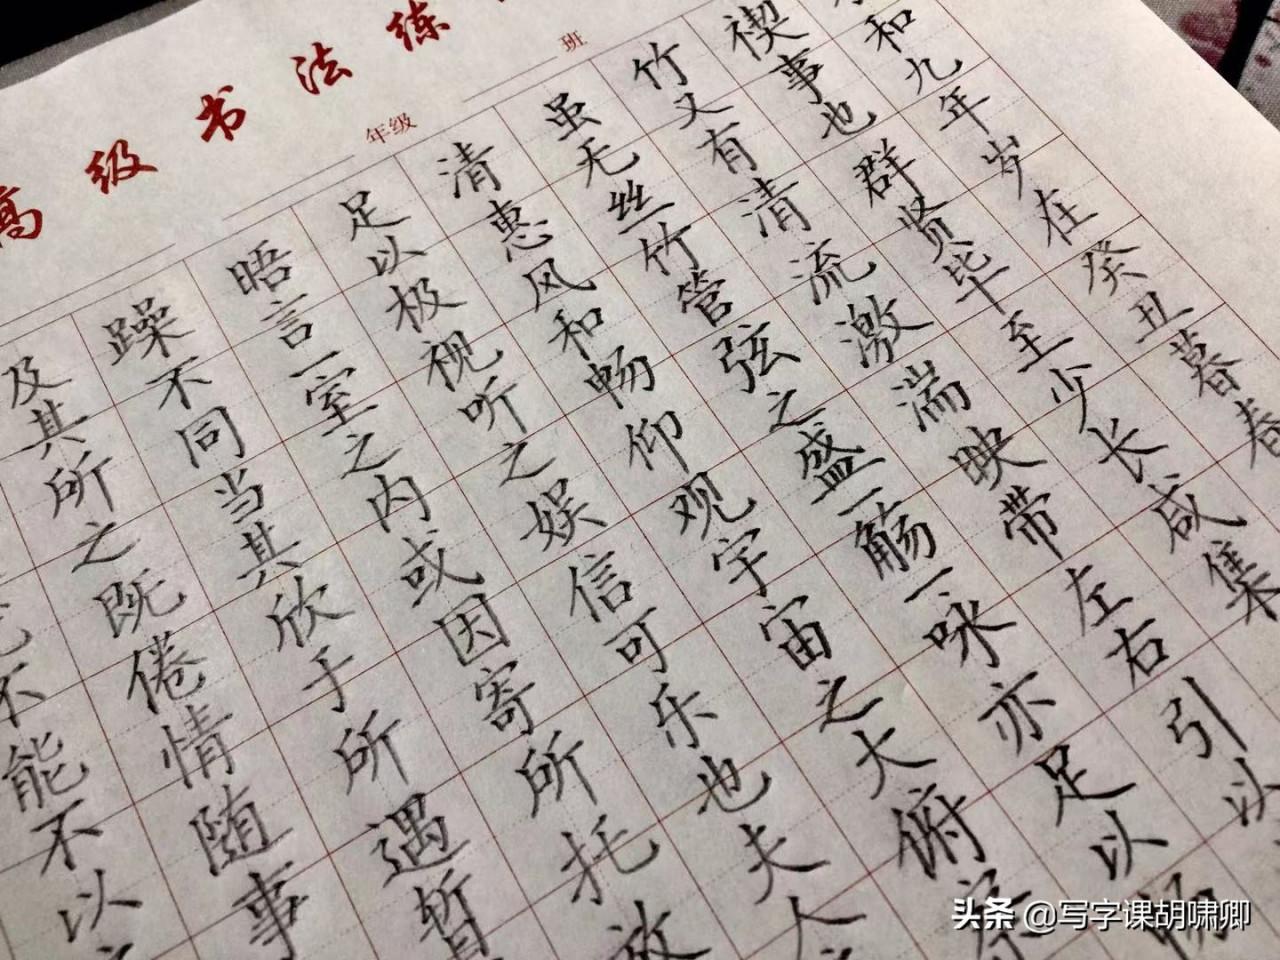 高级书法练
年级 班
和九年岁在癸丑暮春
禊事也群贤毕至少长咸集
竹又有清流激湍映带左右引以
虽无丝竹管弦之盛一觞一咏亦足以畅
清惠风和畅仰观宇宙之大俯察
足以极视听之娱信可乐也夫人
晤言一室之内或因寄所托放
躁不同当其欣于所遇暂
及其所之既倦情随事
不能不以
头条 @写字课胡啸卿